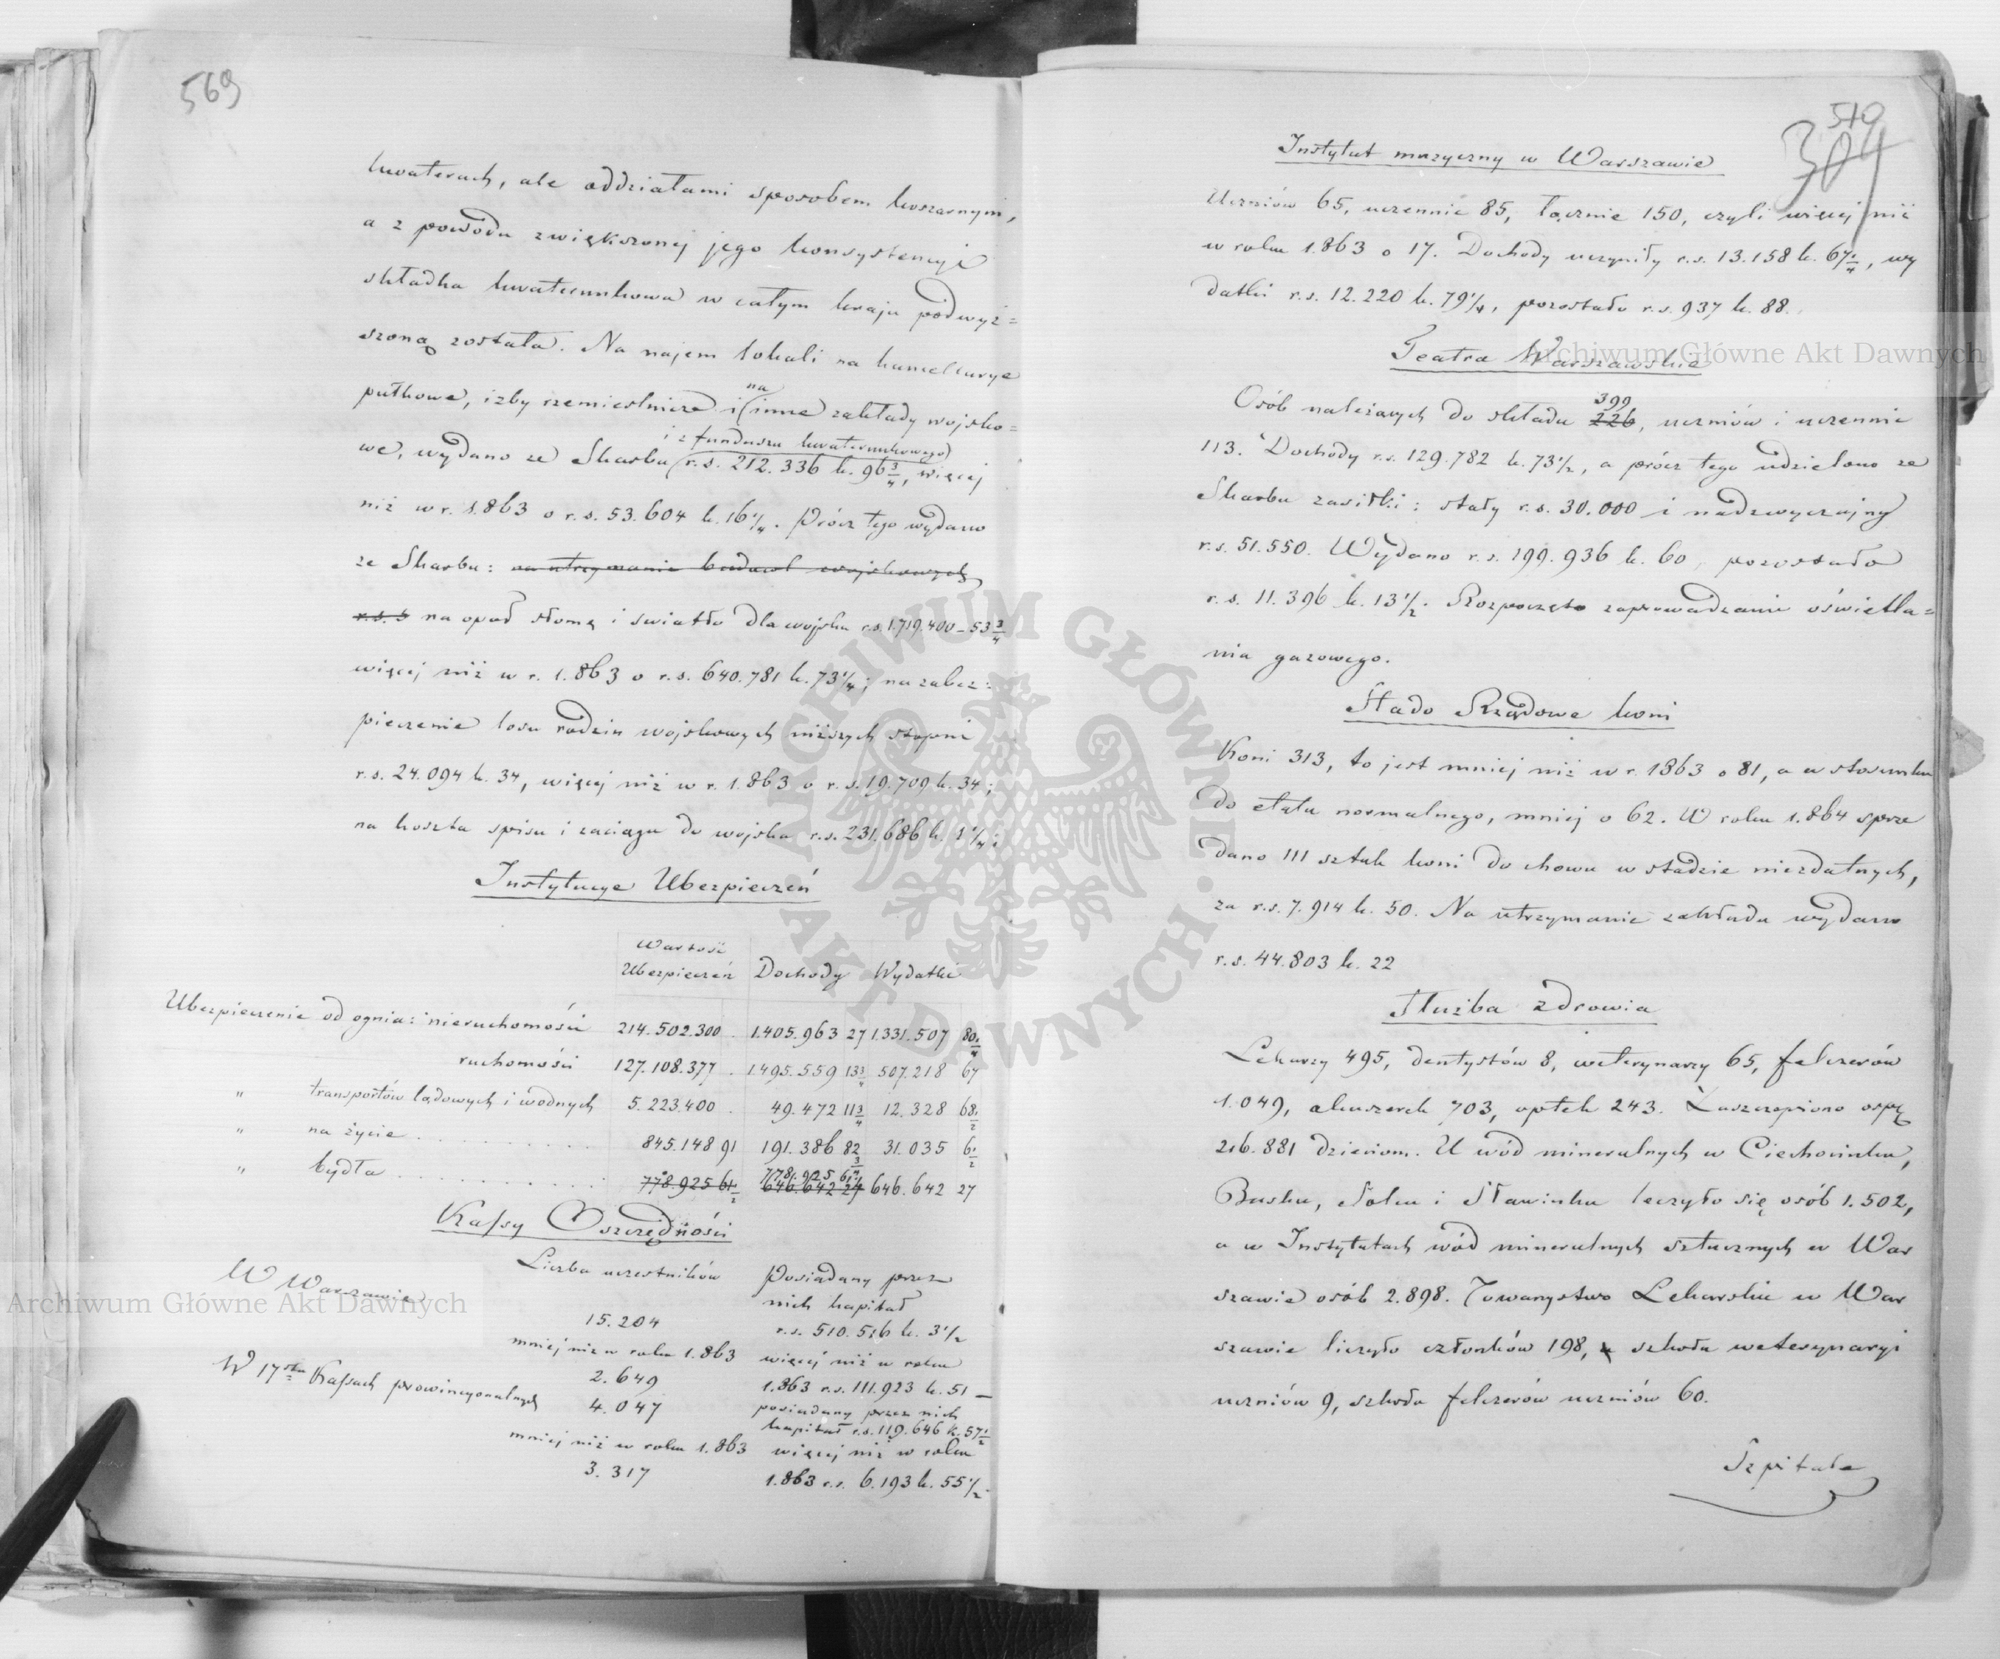 569
kwaterach, ale oddziałami sposobem koszarnym,
a z powodu zwiększonej jego konsystencyi
składka kwaterunkowa w całym kraju podwyż=
szoną została. Na najem lokali na kancellarye
pułkowe, izby rzemieślnicze i na inne zakłady wojsko=
i z funduszu kwaterunkowego
we, wydano ze Skarbu r.s. 212.336 k. 96 3/4, więcej
niż w r. 1.863 o r.s. 53.604 k. 16 1/4. Prócz tego wydano
ze Skarbu: na utrzymanie budowl wojskowych
r.s. 6 na opał słomę i swiatło dla wojska r.s. 1.719.400 - 53 3/4
więcej niż w r. 1.863 o r.s. 640.781 k. 73 1/4; na zabez=
pieczenie losu rodzin wojskowych niższych stopni
r.s. 24.094 k. 34, więcej niż w r. 1.863 o r.s. 19.709 k. 34;
na koszta spisu i zaciągu do wojska r.s. 231.686 k. 1 1/4;
Instytucye Ubezpieczeń
Wartość
Ubezpieczeń Dochody Wydatki
Ubezpieczenie od ognia: nieruchomości 214.502.300 . 1.405.963 27 1.331.507 80 1/4
ruchomości 127.108.377 . 1.495.559 13 3/4 507.218 67
" transportów lądowych i wodnych 5.223.400 . 49.472 11 3/4 12.328 68 1/2
" na życie . . . . . . . . . . 845.148 91 191.386 82 31.035 6 1/2
7.781.925 61 3/4
" bydła . . . . . . . . . . . 778.925 61 1/2 646.642 27 646.642 27
Kassy Oszczędności
Liczba uczestników Posiadany przez
W Warszawie nich kapitał
15.204 r.s. 510.516 k. 3 1/2
mniej niż w roku 1.863 więcej niż w roku
2.649 1.863 r.s. 111.923 k. 51 —
W 17stu Kassach prowincyonalnych 4.047 posiadany przez nich
kapitał r.s. 119.646 k. 57 1/2
mniej niż w roku 1.863 więcej niż w roku
3.317 1.863 r.s. 6.193 k. 55 1/2.
510
304
Instytut muzyczny w Warszawie
Uczniów 65, uczennic 85, łącznie 150, czyli więcej niż
w roku 1.863 o 17. Dochody uczyniły r.s. 13.158 k. 67 1/4, wy
datki r.s. 12.220 k. 79 1/4, pozostało r.s. 937 k. 88.
Teatra Warszawskie
399
Osób należących do składu 226, uczniów i uczennic
113. Dochody r.s. 129.782 k. 73 1/2, a prócz tego udzielono ze
Skarbu zasiłki: stały r.s. 30.000 i nadzwyczajny
r.s. 51.550. Wydano r.s. 199.936 k. 60, pozostało
r.s. 11.396 k. 13 1/2. Rozpoczęto zaprowadzanie oświetla=
nia gazowego.
Stado Rządowe koni
Koni 313, to jest mniej niż w r. 1863 o 81, a w stosunku
do etatu normalnego, mniej o 62. W roku 1.864 sprze
dano 111 sztuk koni do chowu w stadzie niezdatnych,
za r.s. 7.914 k. 50. Na utrzymanie zakładu wydano
r.s. 44.803 k. 22
Służba zdrowia
Lekarzy 495, dentystów 8, weterynarzy 65, felczerów
1.049, akuszerek 703, aptek 243. Zaszczepiono ospę
216.881 dzieciom. U wód mineralnych w Ciechocinku,
Busku, Solcu i Sławinku leczyło się osób 1.502,
a w Instytutach wód mineralnych sztucznych w War
szawie osób 2.898. Towarzystwo Lekarskie w War
szawie liczyło członków 198, szkoła weterynaryi
uczniów 9, szkoła felczerów uczniów 60.
Szpitale
Archiwum Główne Akt Dawnych
Archiwum Główne Akt Dawnych
ARCHIWUM GŁÓWNE
AKT DAWNYCH